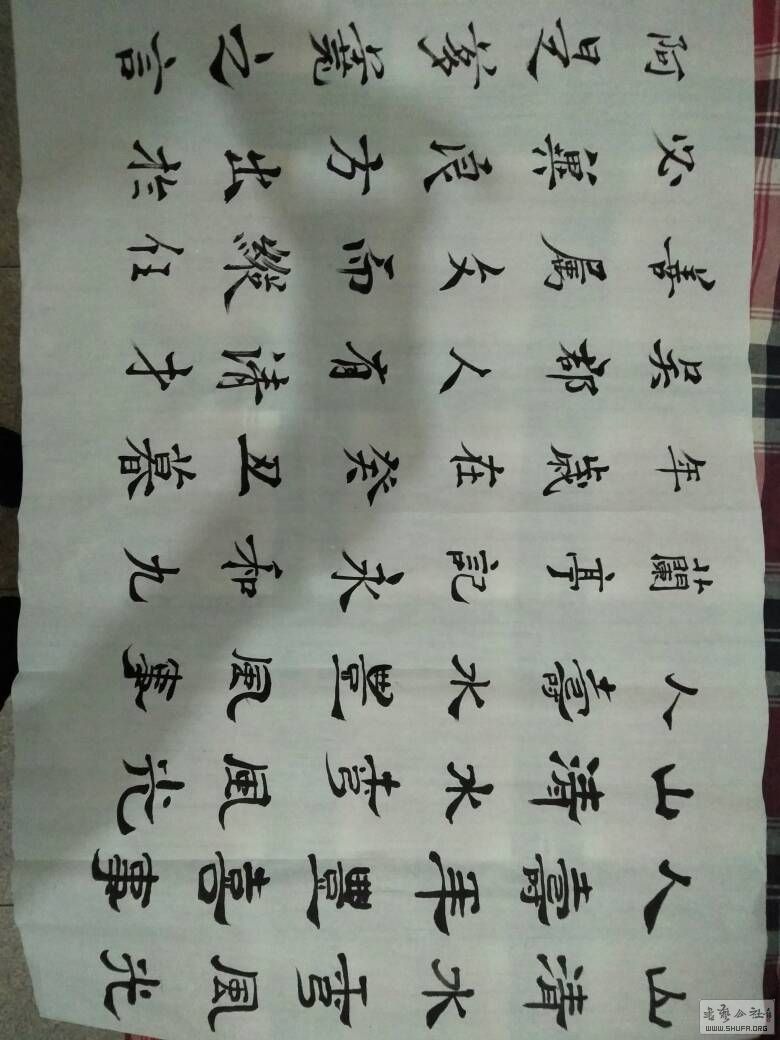 山清水秀風光
人壽年豐喜事
山清水秀風光
人壽水豐風事
蘭亭記永和九
年歲在癸丑暮
吳都人有清才
善屬文而縱任
必無良方出於
阿是之言
老藝公社
WWW.SHUFA.ORG